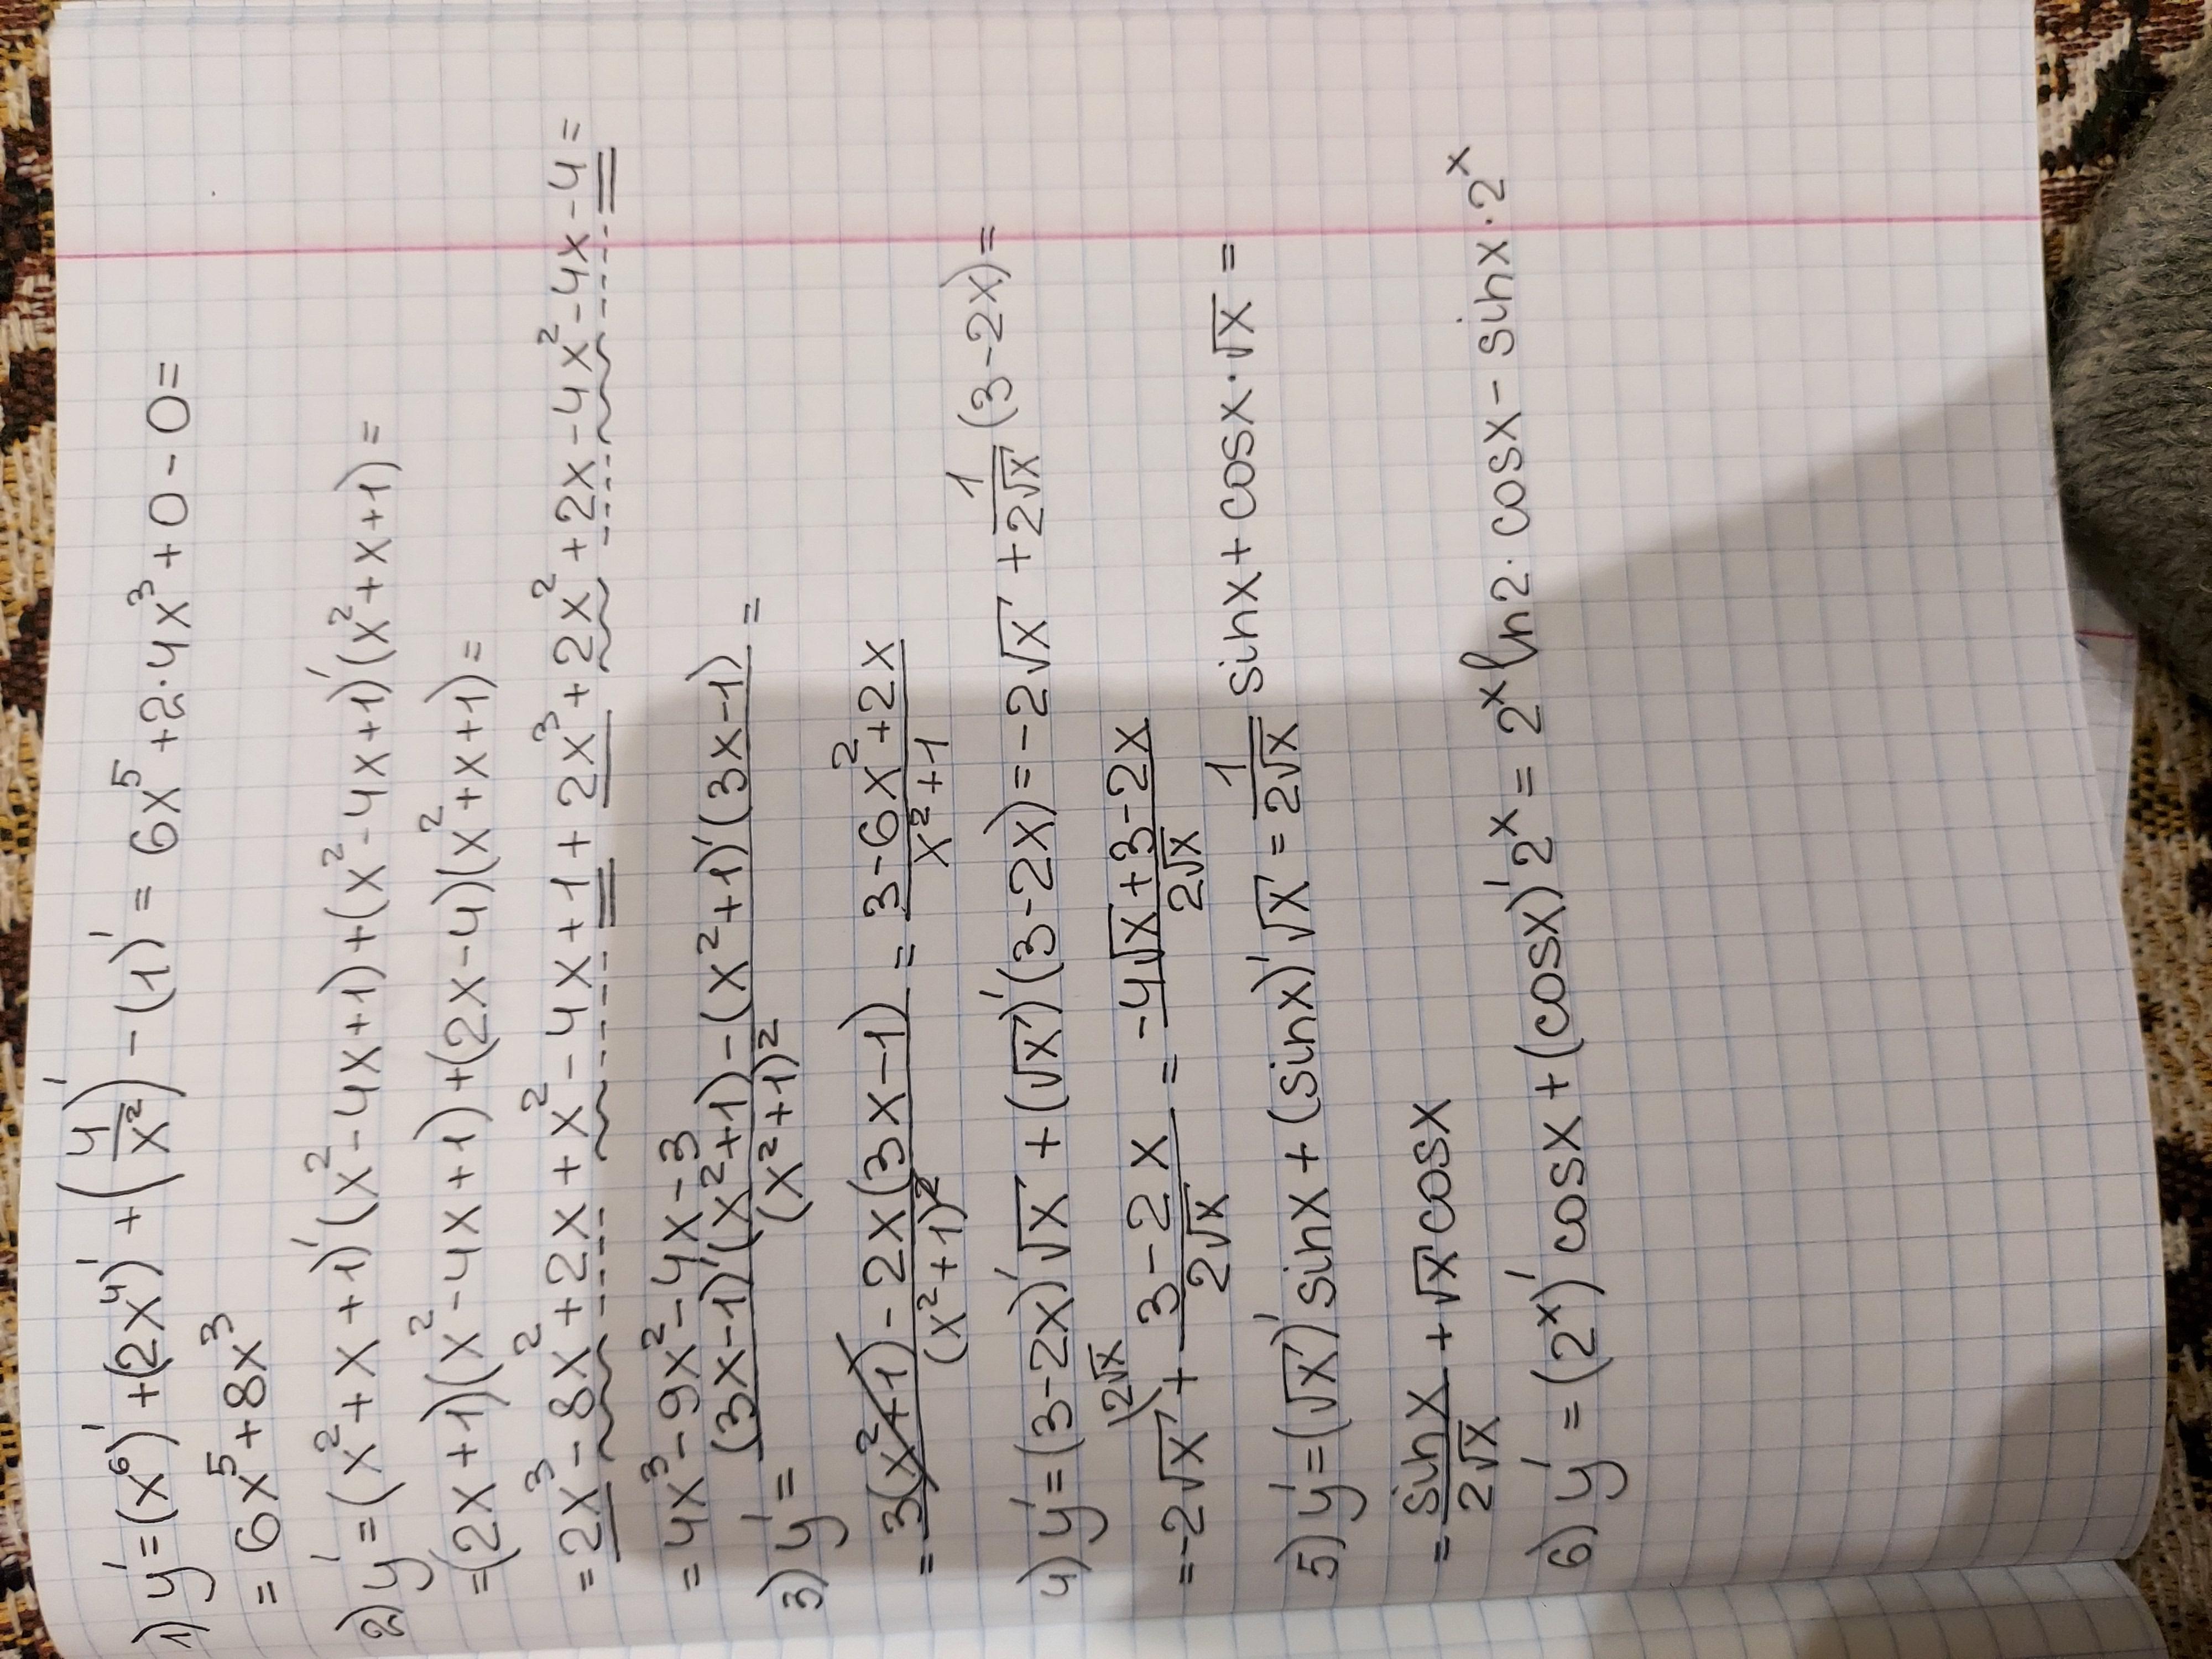 1) y' = (x⁶)' + (2x⁴)' + (4/x²)' - (1)' = 6x⁵ + 2·4x³ + 0 - 0 =
= 6x⁵ + 8x³
2) y' = (x² + x + 1)' (x² - 4x + 1) + (x² - 4x + 1)' (x² + x + 1) =
= (2x + 1)(x² - 4x + 1) + (2x - 4)(x² + x + 1) =
= 2x³ - 8x² + 2x + x² - 4x + 1 + 2x³ + 2x² + 2x - 4x² - 4x - 4 =
= 4x³ - 9x² - 4x - 3
3) y' = ((3x - 1)' (x² + 1) - (x² + 1)' (3x - 1))/(x² + 1)² =
= (3(x² + 1) - 2x(3x - 1))/(x² + 1)² = (3 - 6x² + 2x)/(x² + 1)
4) y' = (3 - 2x)' √x + (√x)' (3 - 2x) = -2√x + 1/(2√x) (3 - 2x) =
= -2√x (2√x + (3 - 2x)/(2√x) = (-4√x + 3 - 2x)/(2√x)
5) y' = (√x)' sinx + (sinx)' √x = 1/(2√x) sinx + cosx · √x =
= sinx/(2√x) + √x cosx
6) y' = (2ˣ)' cosx + (cosx)' 2ˣ = 2ˣ ln2 · cosx - sinx · 2ˣ